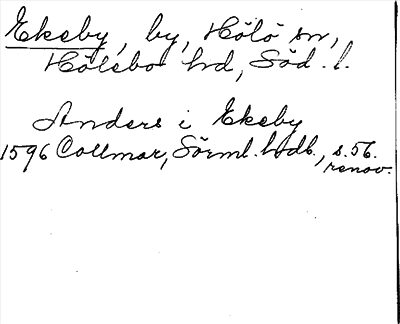 Ekeby, by, Hölö sn,
Hölebo hd, Söd. l.
Anders i Ekeby
1596 Collmar, Sörml. hdb., s. 56.
renov.